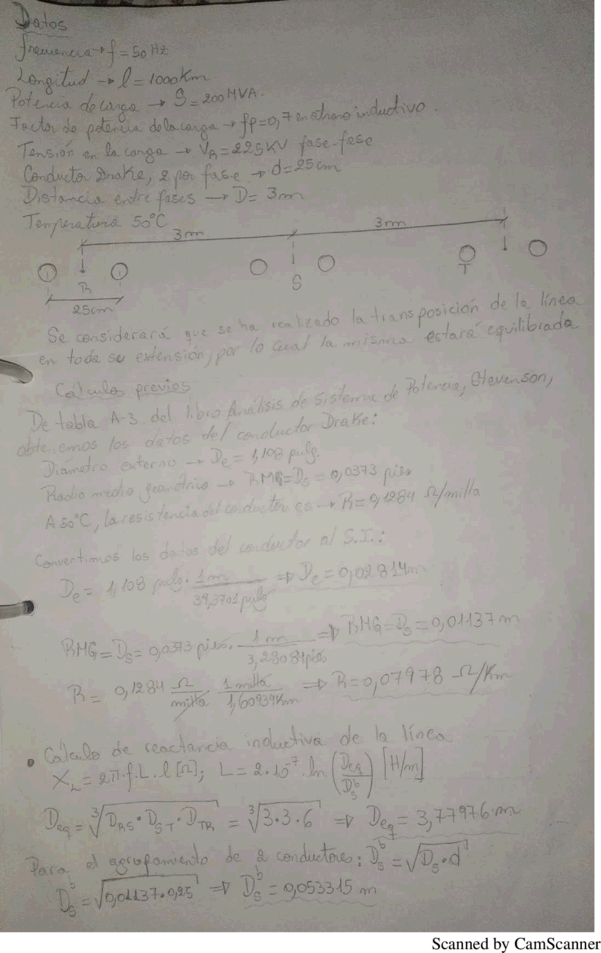 Datos
frecuencia → f = 50 Hz
Longitud → l = 1000 Km
Potencia de carga → S = 200 MVA.
Factor de potencia de la carga → fp = 0,7 en atraso inductivo.
Tensión en la carga → V_R = 225 KV fase-fase
Conductor Drake, 2 por fase → d = 25cm
Distancia entre fases → D = 3m
Temperatura 50°C
3m 3m
R S T
25cm
Se considerará que se ha realizado la transposición de la línea
en toda su extensión, por lo cual la misma estará equilibrada
Cálculos previos
De tabla A-3 del libro Análisis de Sistema de Potencia, Stevenson,
obtenemos los datos del conductor Drake:
Diametro externo → De = 1,108 pulg.
Radio medio geométrico → RMG = Ds = 0,0373 pies
A 50°C, la resistencia del conductor es → R = 0,1284 Ω/milla
Convertimos los datos del conductor al S.I.:
De = 1,108 pulg. 1m / 39,3701 pulg ⇒ De = 0,02814 m
RMG = Ds = 0,0373 pies. 1m / 3,28084 pies ⇒ RMG = Ds = 0,01137 m
R = 0,1284 Ω/milla . 1 milla / 1,60934 Km ⇒ R = 0,07978 Ω/Km
• Cálculo de reactancia inductiva de la línea
X_L = 2π.f.L.l [Ω]; L = 2.10⁻⁷.ln (Deq / Ds^b) [H/m]
Deq = ∛(D_RS . D_ST . D_TR) = ∛(3.3.6) ⇒ Deq = 3,77976 m
Para el agrupamiento de 2 conductores: Ds^b = √(Ds . d)
Ds^b = √(0,01137.0,25) ⇒ Ds^b = 0,053315 m
Scanned by CamScanner